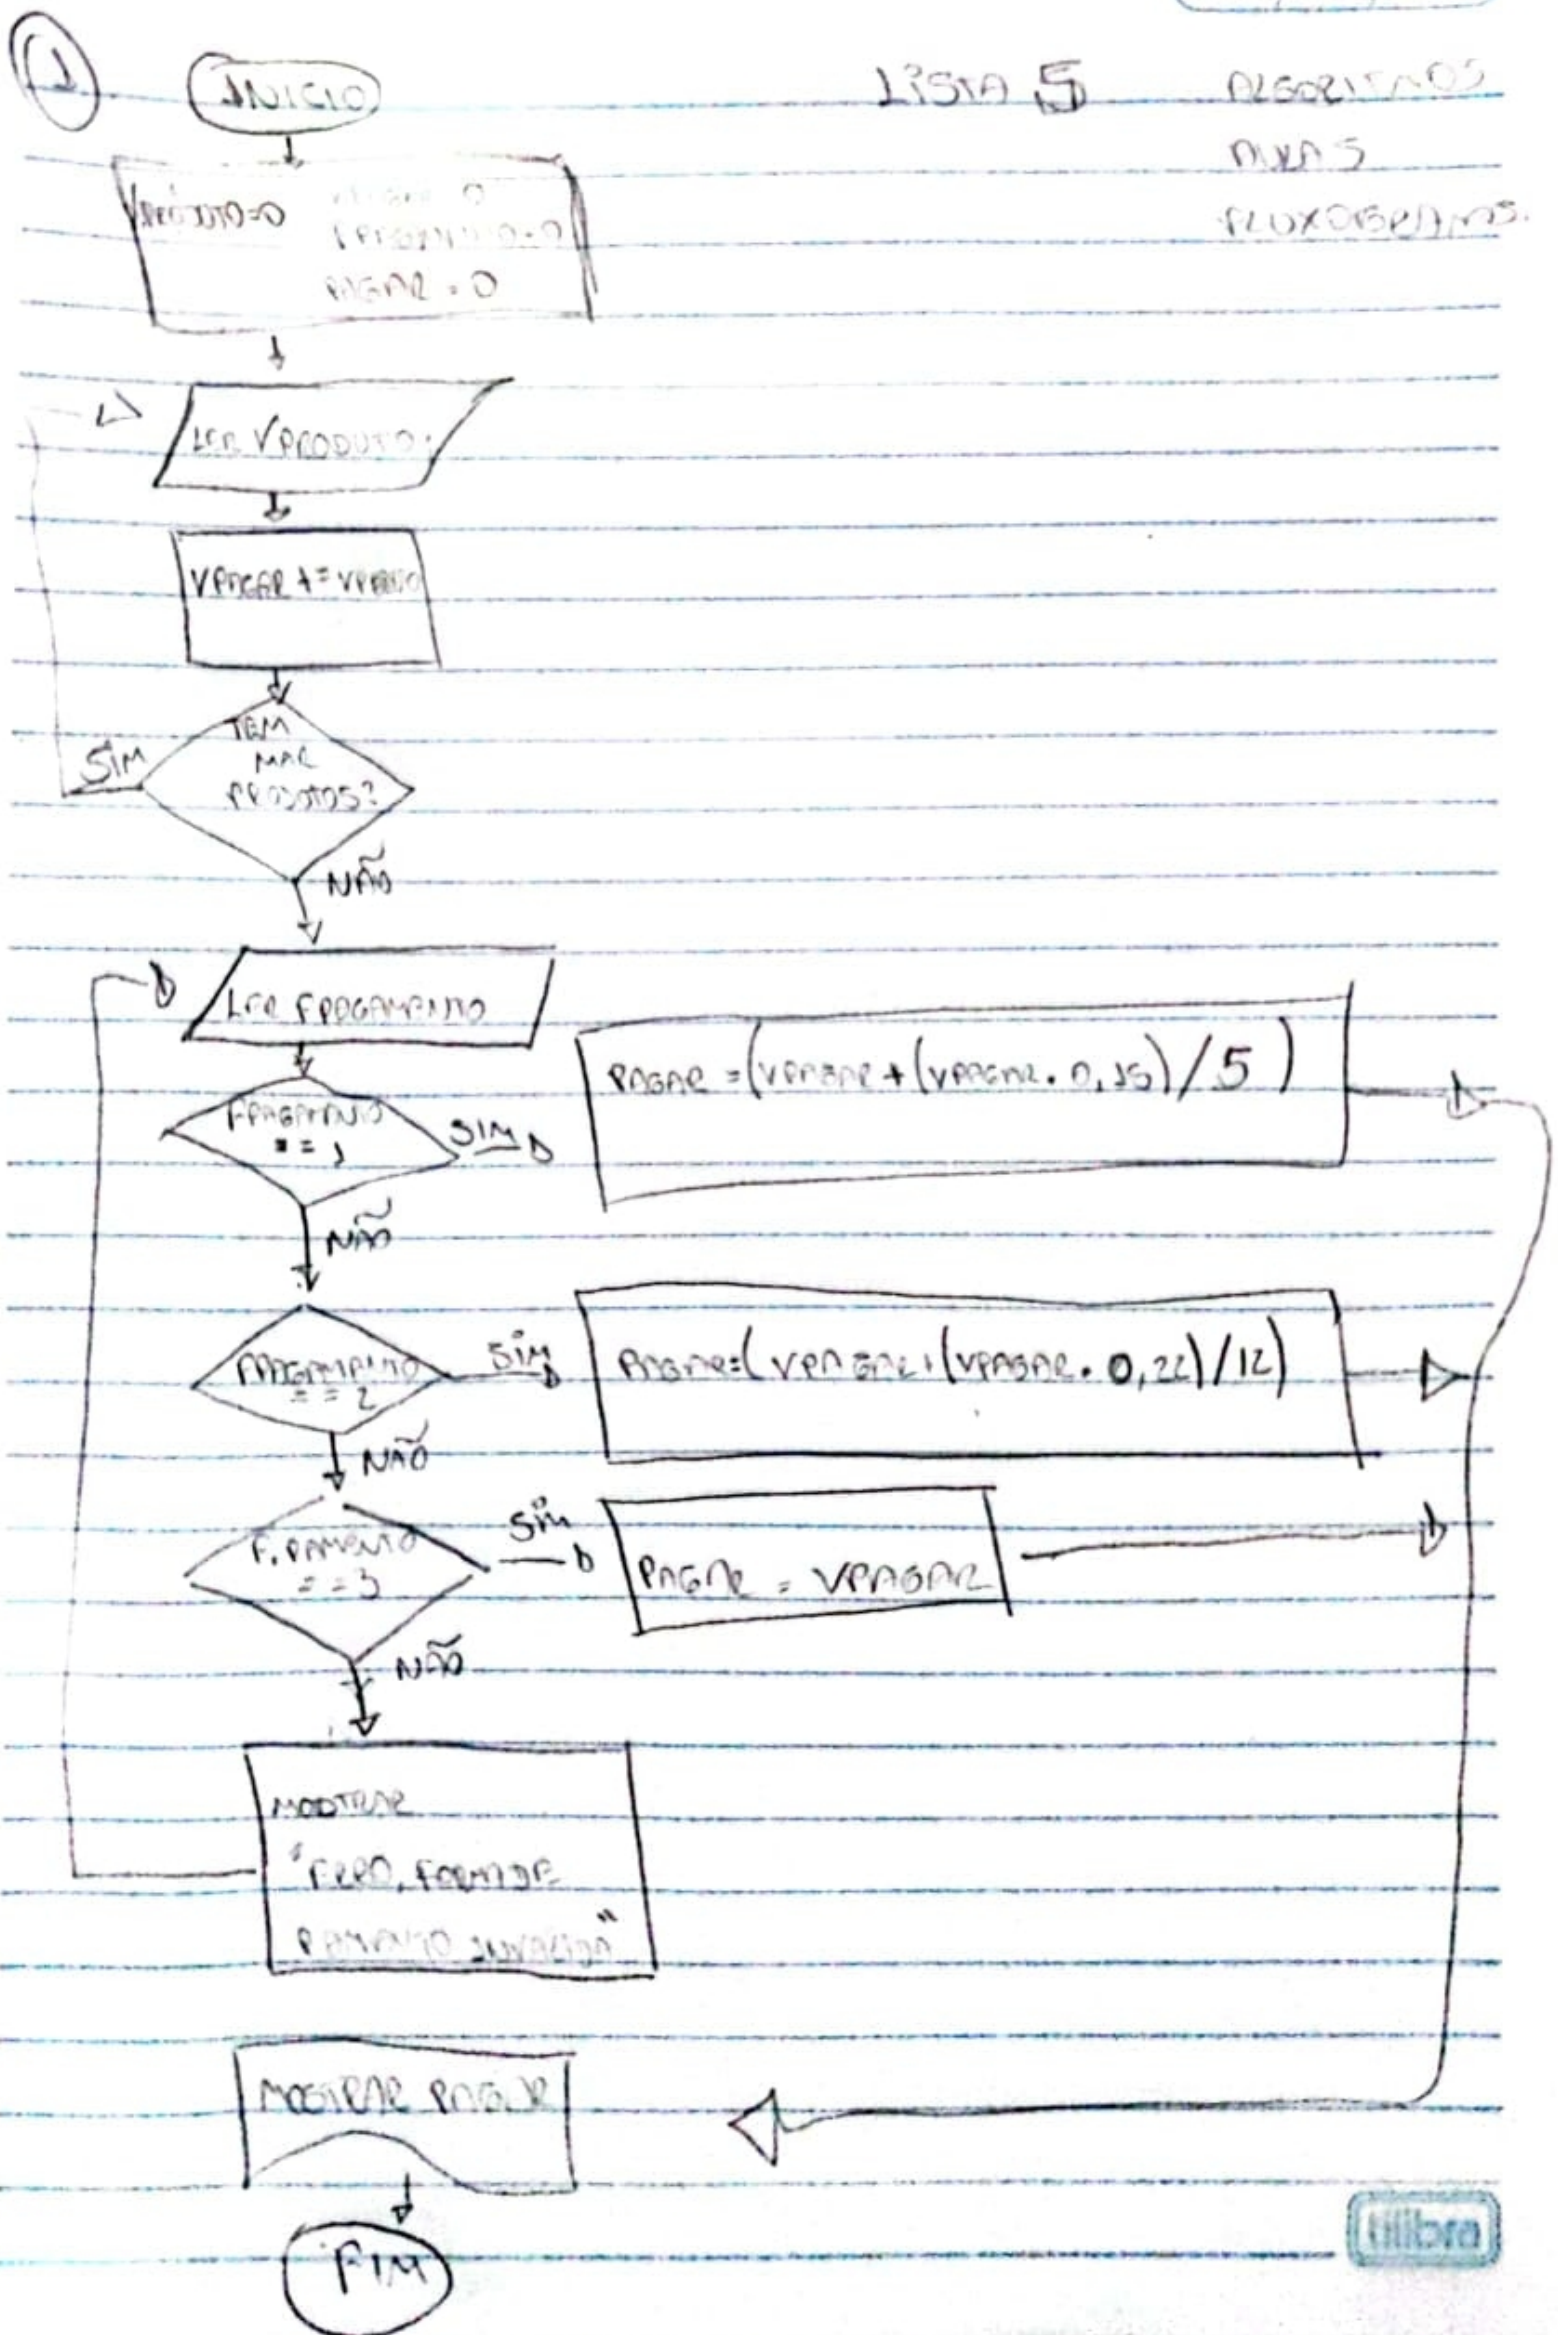 1
INICIO
LISTA 5
ALGORITMOS
AULA 5
FLUXOGRAMAS.
VPRODUTO=0
VPAGAR=0
FPAGAMENTO=0
PAGAR=0
LER VPRODUTO
VPAGAR +=
TEM
MAR
PRODUTOS?
SIM
NÃO
LER FPAGAMENTO
FPAGAMENTO
==1
SIM
PAGAR =(VPAGAR + (VPAGAR. 0,15) / 5 )
NÃO
FPAGAMENTO
==2
SIM
PAGAR=(VPAGAR+(VPAGAR. 0,22)/12)
NÃO
F.PAMENTO
==3
SIM
PAGAR = VPAGAR
NÃO
MODTRAR
"ERRO, FORMA DE
PAMENTO INVALIDA"
MOSTRAR PAGAR
FIM
tilibra